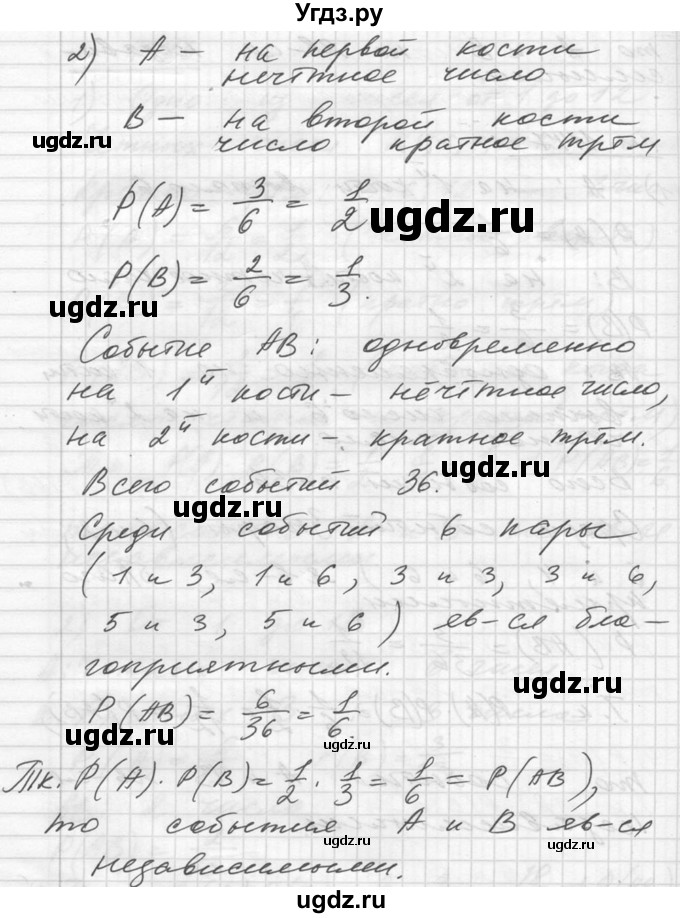 Угдз.ру
2) A — на первой кости
нечётное число
B — на второй кости
ugdz.ru
число кратное трём
P(A) = 3/6 = 1/2
ugdz.ru
P(B) = 2/6 = 1/3.
ugdz.ru
Событие AB: одновременно
на 1й кости — нечётное число,
на 2й кости — кратное трём.
ugdz.ru
Всего событий 36.
ugdz.ru
Среди событий 6 пары
(1 и 3, 1 и 6, 3 и 3, 3 и 6,
5 и 3, 5 и 6) яв-ся бла-
гоприятными.
ugdz.ru
P(AB) = 6/36 = 1/6.
ugdz.ru
ugdz.ru
Тк. P(A) · P(B) = 1/2 · 1/3 = 1/6 = P(AB),
то события A и B яв-ся
ugdz.ru
независимыми.
ugdz.ru